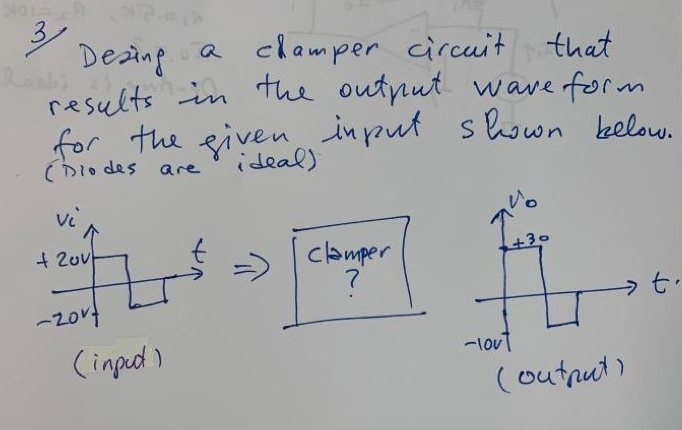 3/
Desing a clamper circuit that
results in the output wave form
for the given input shown below.
(Diodes are ideal)
Vi
+20V
t
-20V
(input)
⇒
Clamper
?
Vo
+30
t.
-10V
(output)